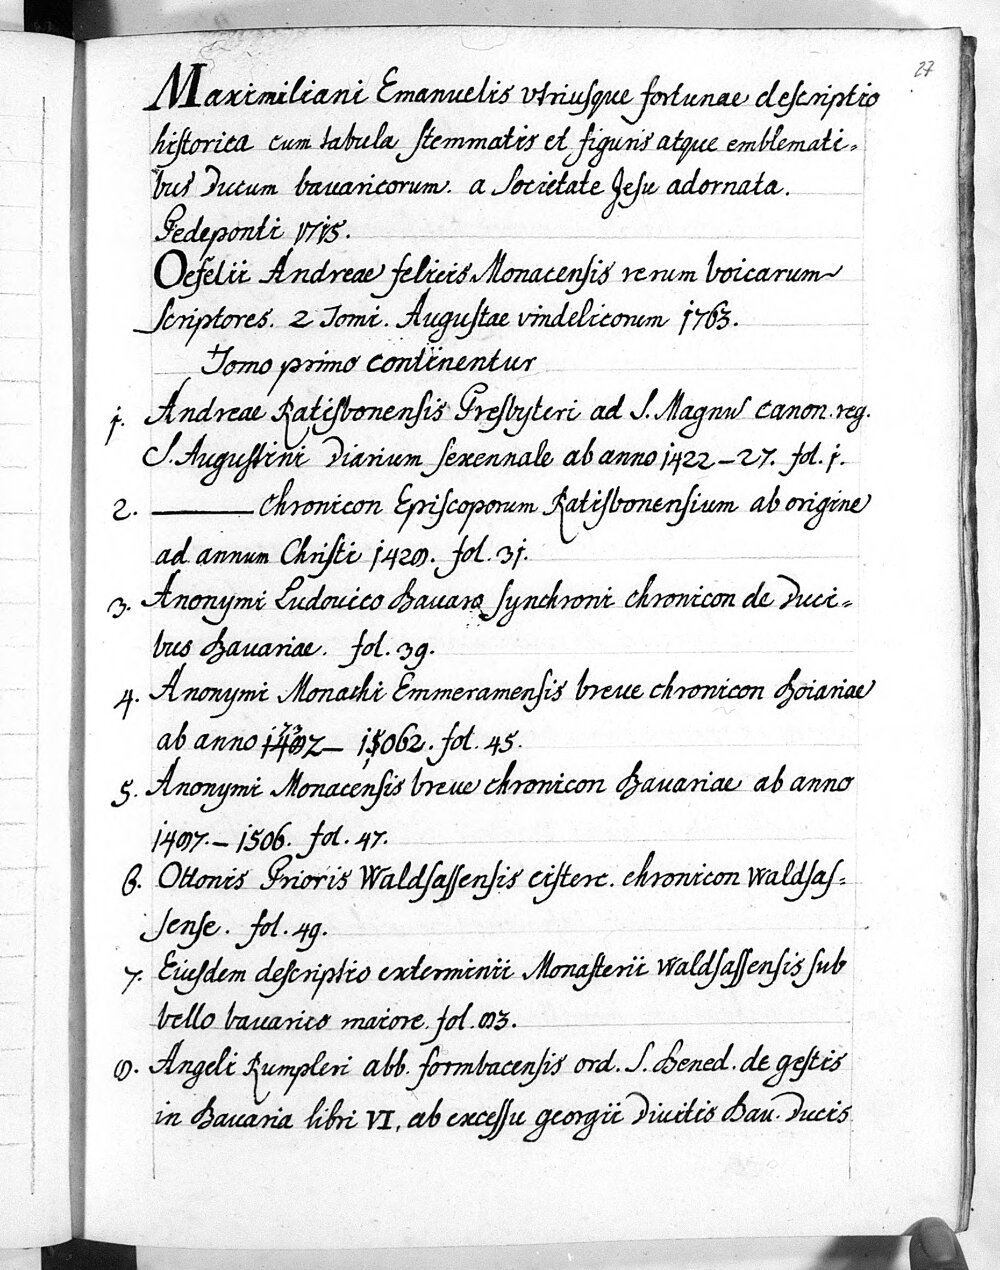 27
Maximiliani Emanuelis utriusque fortunae descriptio
historica cum tabula stemmatis et figuris atque emblemati-
bus Ducum bavaricorum. a Societate Jesu adornata.
Pedeponti 1715.
Oefelii Andreae felicis Monacensis rerum boicarum
scriptores. 2 Tomi. Augustae vindelicorum 1763.
Tomo primo continentur
1. Andreae Ratisbonensis Presbyteri ad S. Magnū canon. reg.
S. Augustini Diarium sexennale ab anno 1422 – 27. fol. 1.
2. ——— Chronicon Episcoporum Ratisbonensium ab origine
ad annum Christi 1428. fol. 31.
3. Anonymi Ludovico Bavaro synchroni chronicon de Duci-
bus Bavariae. fol. 39.
4. Anonymi Monachi Emmeramensis breve chronicon Boiariae
ab anno – 1062. fol. 45.
5. Anonymi Monacensis breve chronicon Bavariae ab anno
1487. – 1506. fol. 47.
6. Ottonis Prioris Waldsassensis cisterc. chronicon Waldsas-
sense. fol. 49.
7. Eiusdem descriptio exterminii Monasterii Waldsassensis sub
bello bavarico maiore. fol. 83.
8. Angeli Rumpleri abb. formbacensis ord. S. Bened. de gestis
in Bavaria libri VI, ab excessu georgii Divitis Bav. Ducis